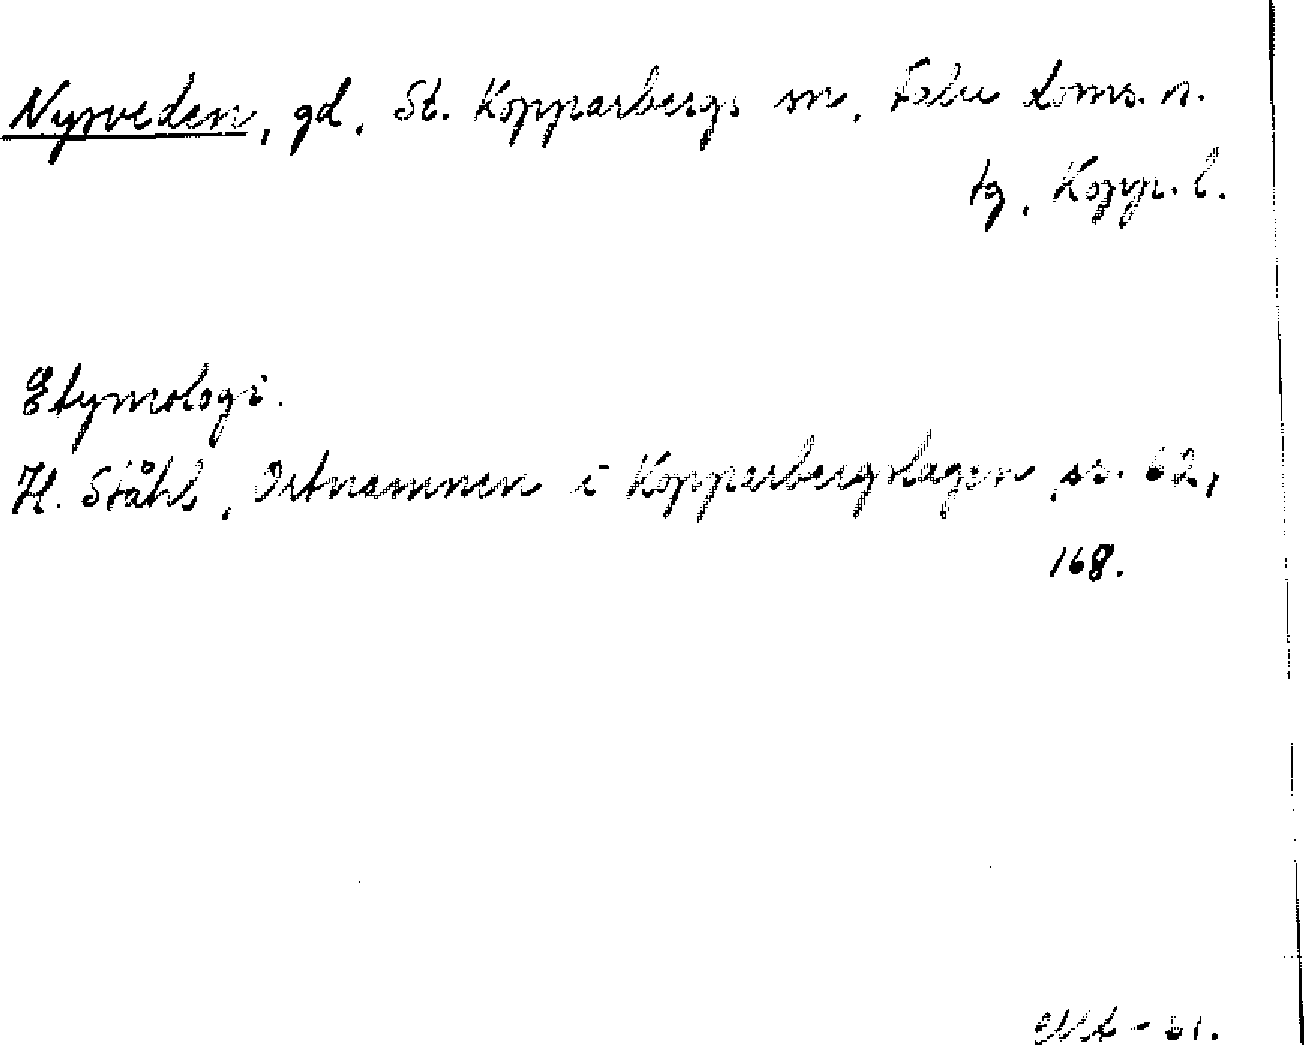 Nyrveden, gd, St. Kopparbergs sn, Falu doms. n.
tg, Kopp. l.
Etymologi.
H. Ståhl, Ortnamnen i Kopparbergslagen, ss. 62,
168.
- 61.